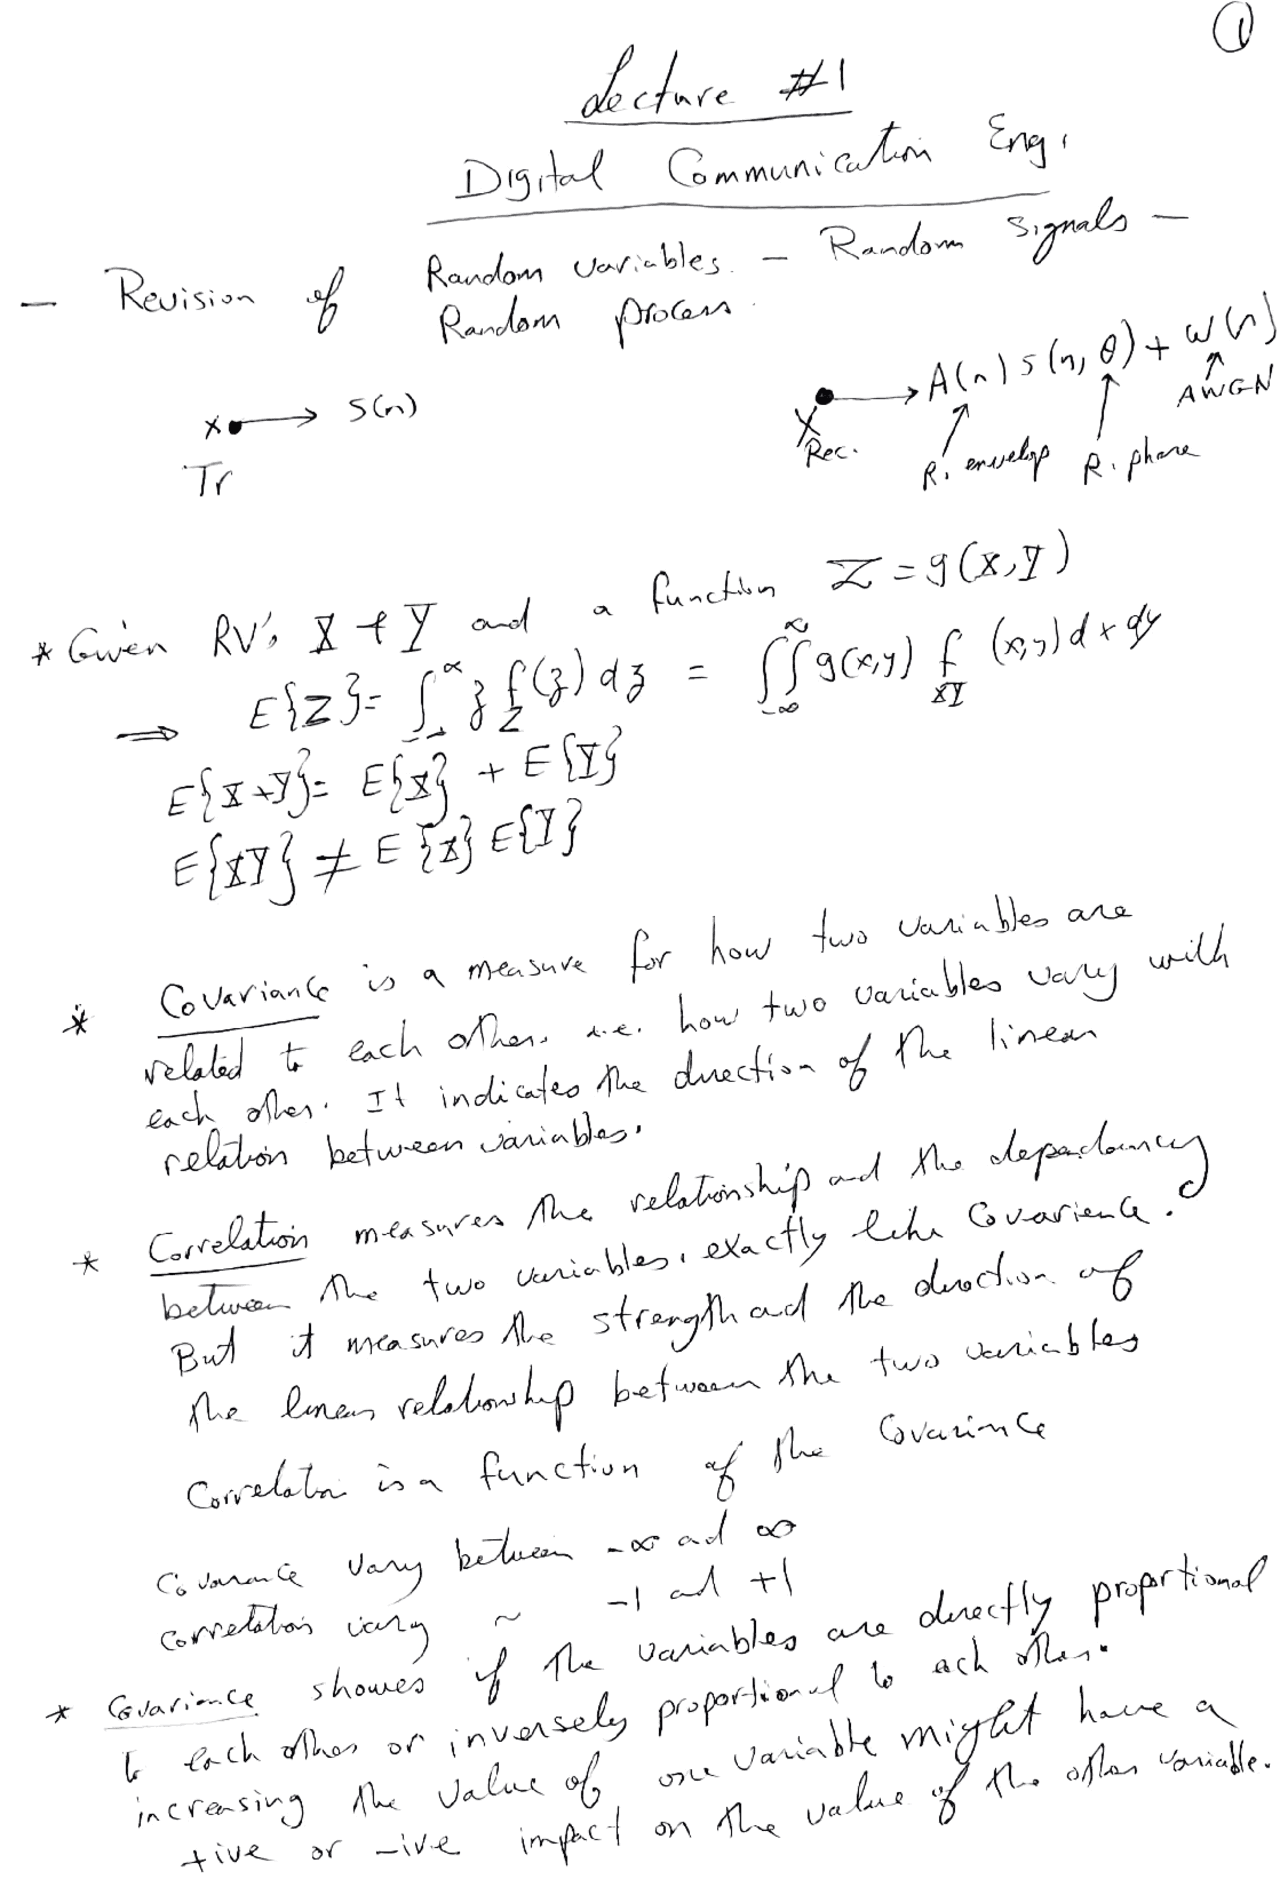 1
Lecture #1
Digital Communication Eng.
— Revision of Random variables. — Random signals —
Random process.
X → S(n)
Tr
X → A(n) s(n, θ) + w(n)
Rec. R. envelop R. phase AWGN
* Given RV's X & Y and a function Z = g(X,Y)
⇒ E{Z} = ∫_{-∞}^{∞} z f_Z(z) dz = ∫∫_{-∞}^{∞} g(x,y) f_{XY}(x,y) dx dy
E{X+Y} = E{X} + E{Y}
E{XY} ≠ E{X} E{Y}
* Covariance is a measure for how two variables are
related to each other. i.e. how two variables vary with
each other. It indicates the direction of the linear
relation between variables.
* Correlation measures the relationship and the dependancy
between the two variables, exactly like Covarience.
But it measures the strength and the direction of
the linear relationship between the two variables
Correlation is a function of the Covariance
Covariance vary between -∞ and ∞
correlation vary ~ -1 and +1
* Covariance showes if the variables are directly proportional
to each other or inversely proportional to each other.
increasing the value of one variable might have a
+ive or -ive impact on the value of the other variable.